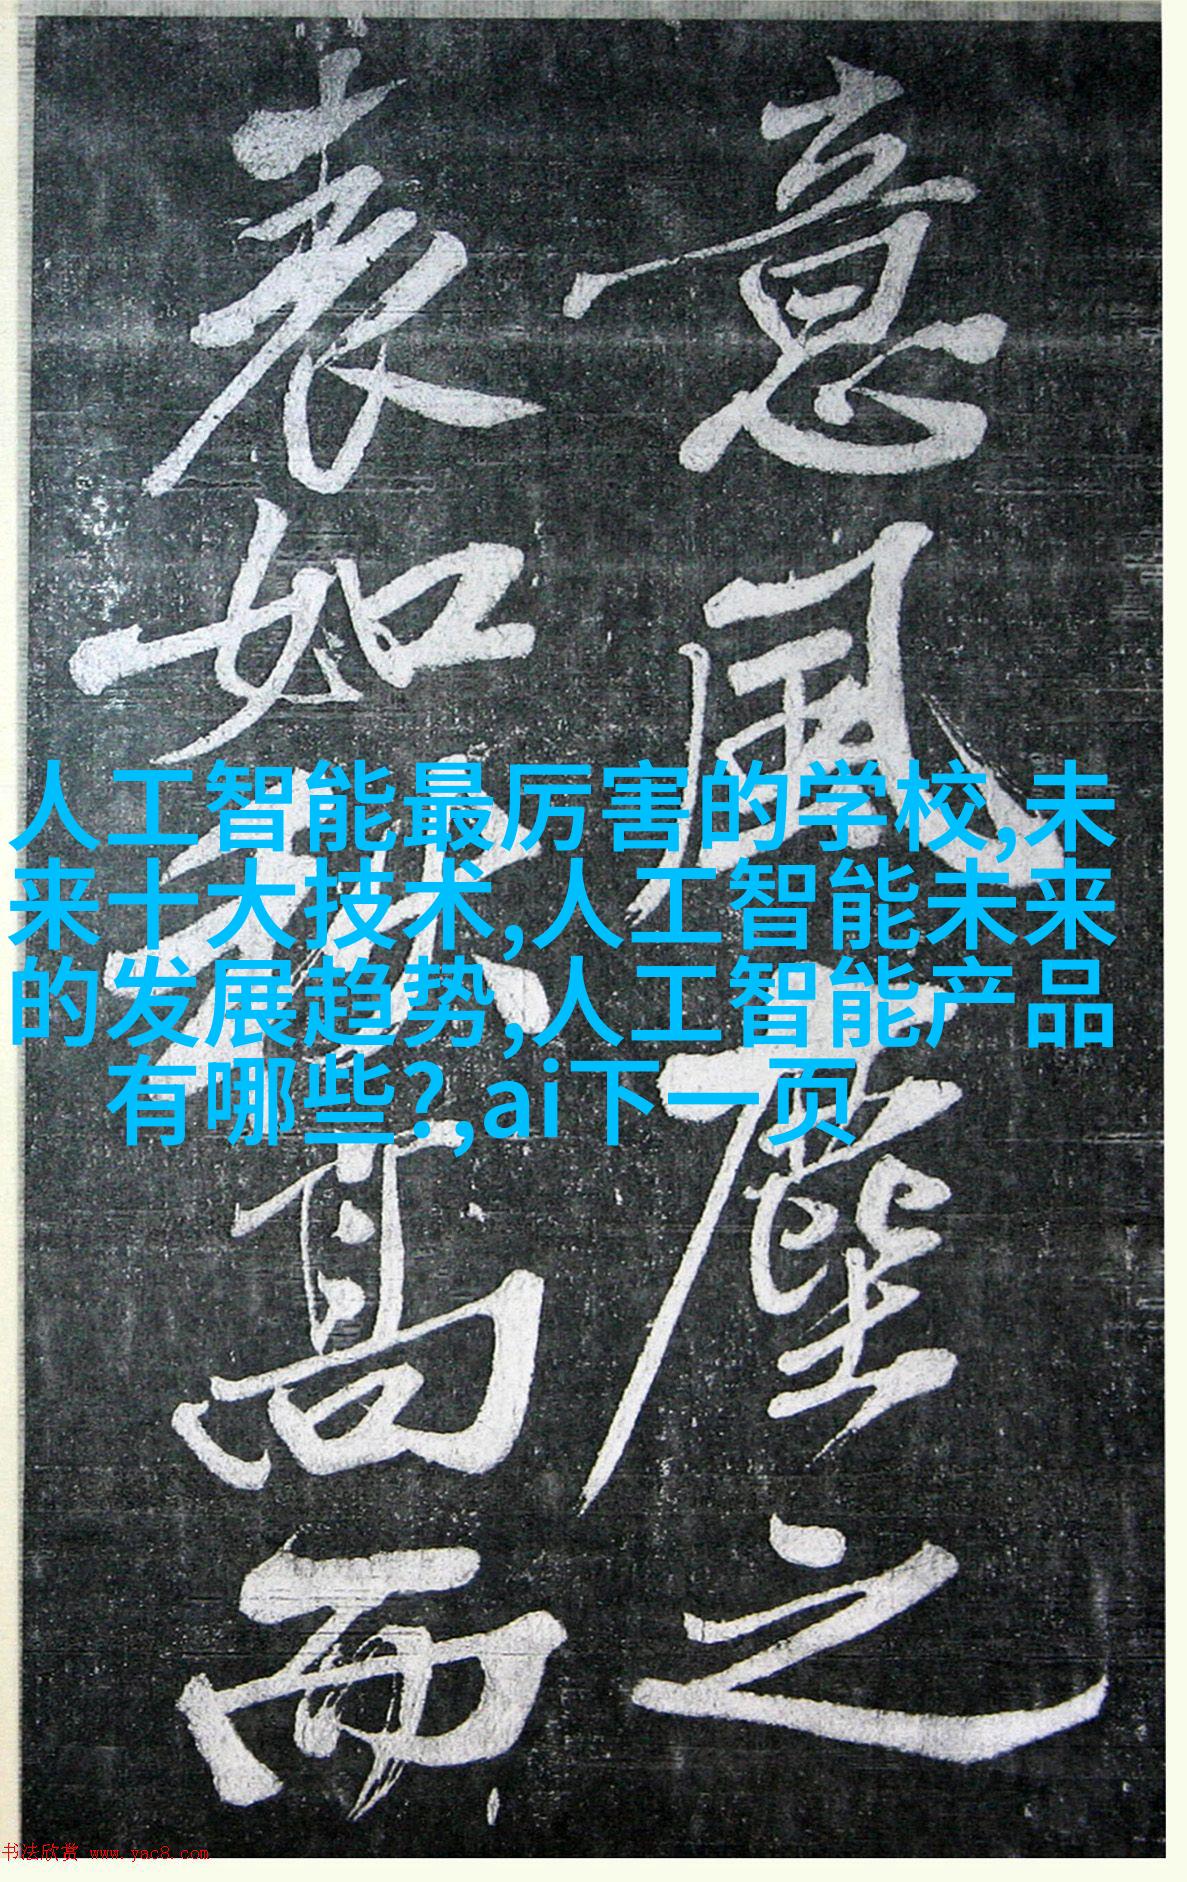 意風塵之
表如秋高而
人工智能最厉害的学校,未
来十大技术,人工智能未来
的发展趋势,人工智能产品
有哪些?,ai下一页
书法欣赏 www.yac8.com